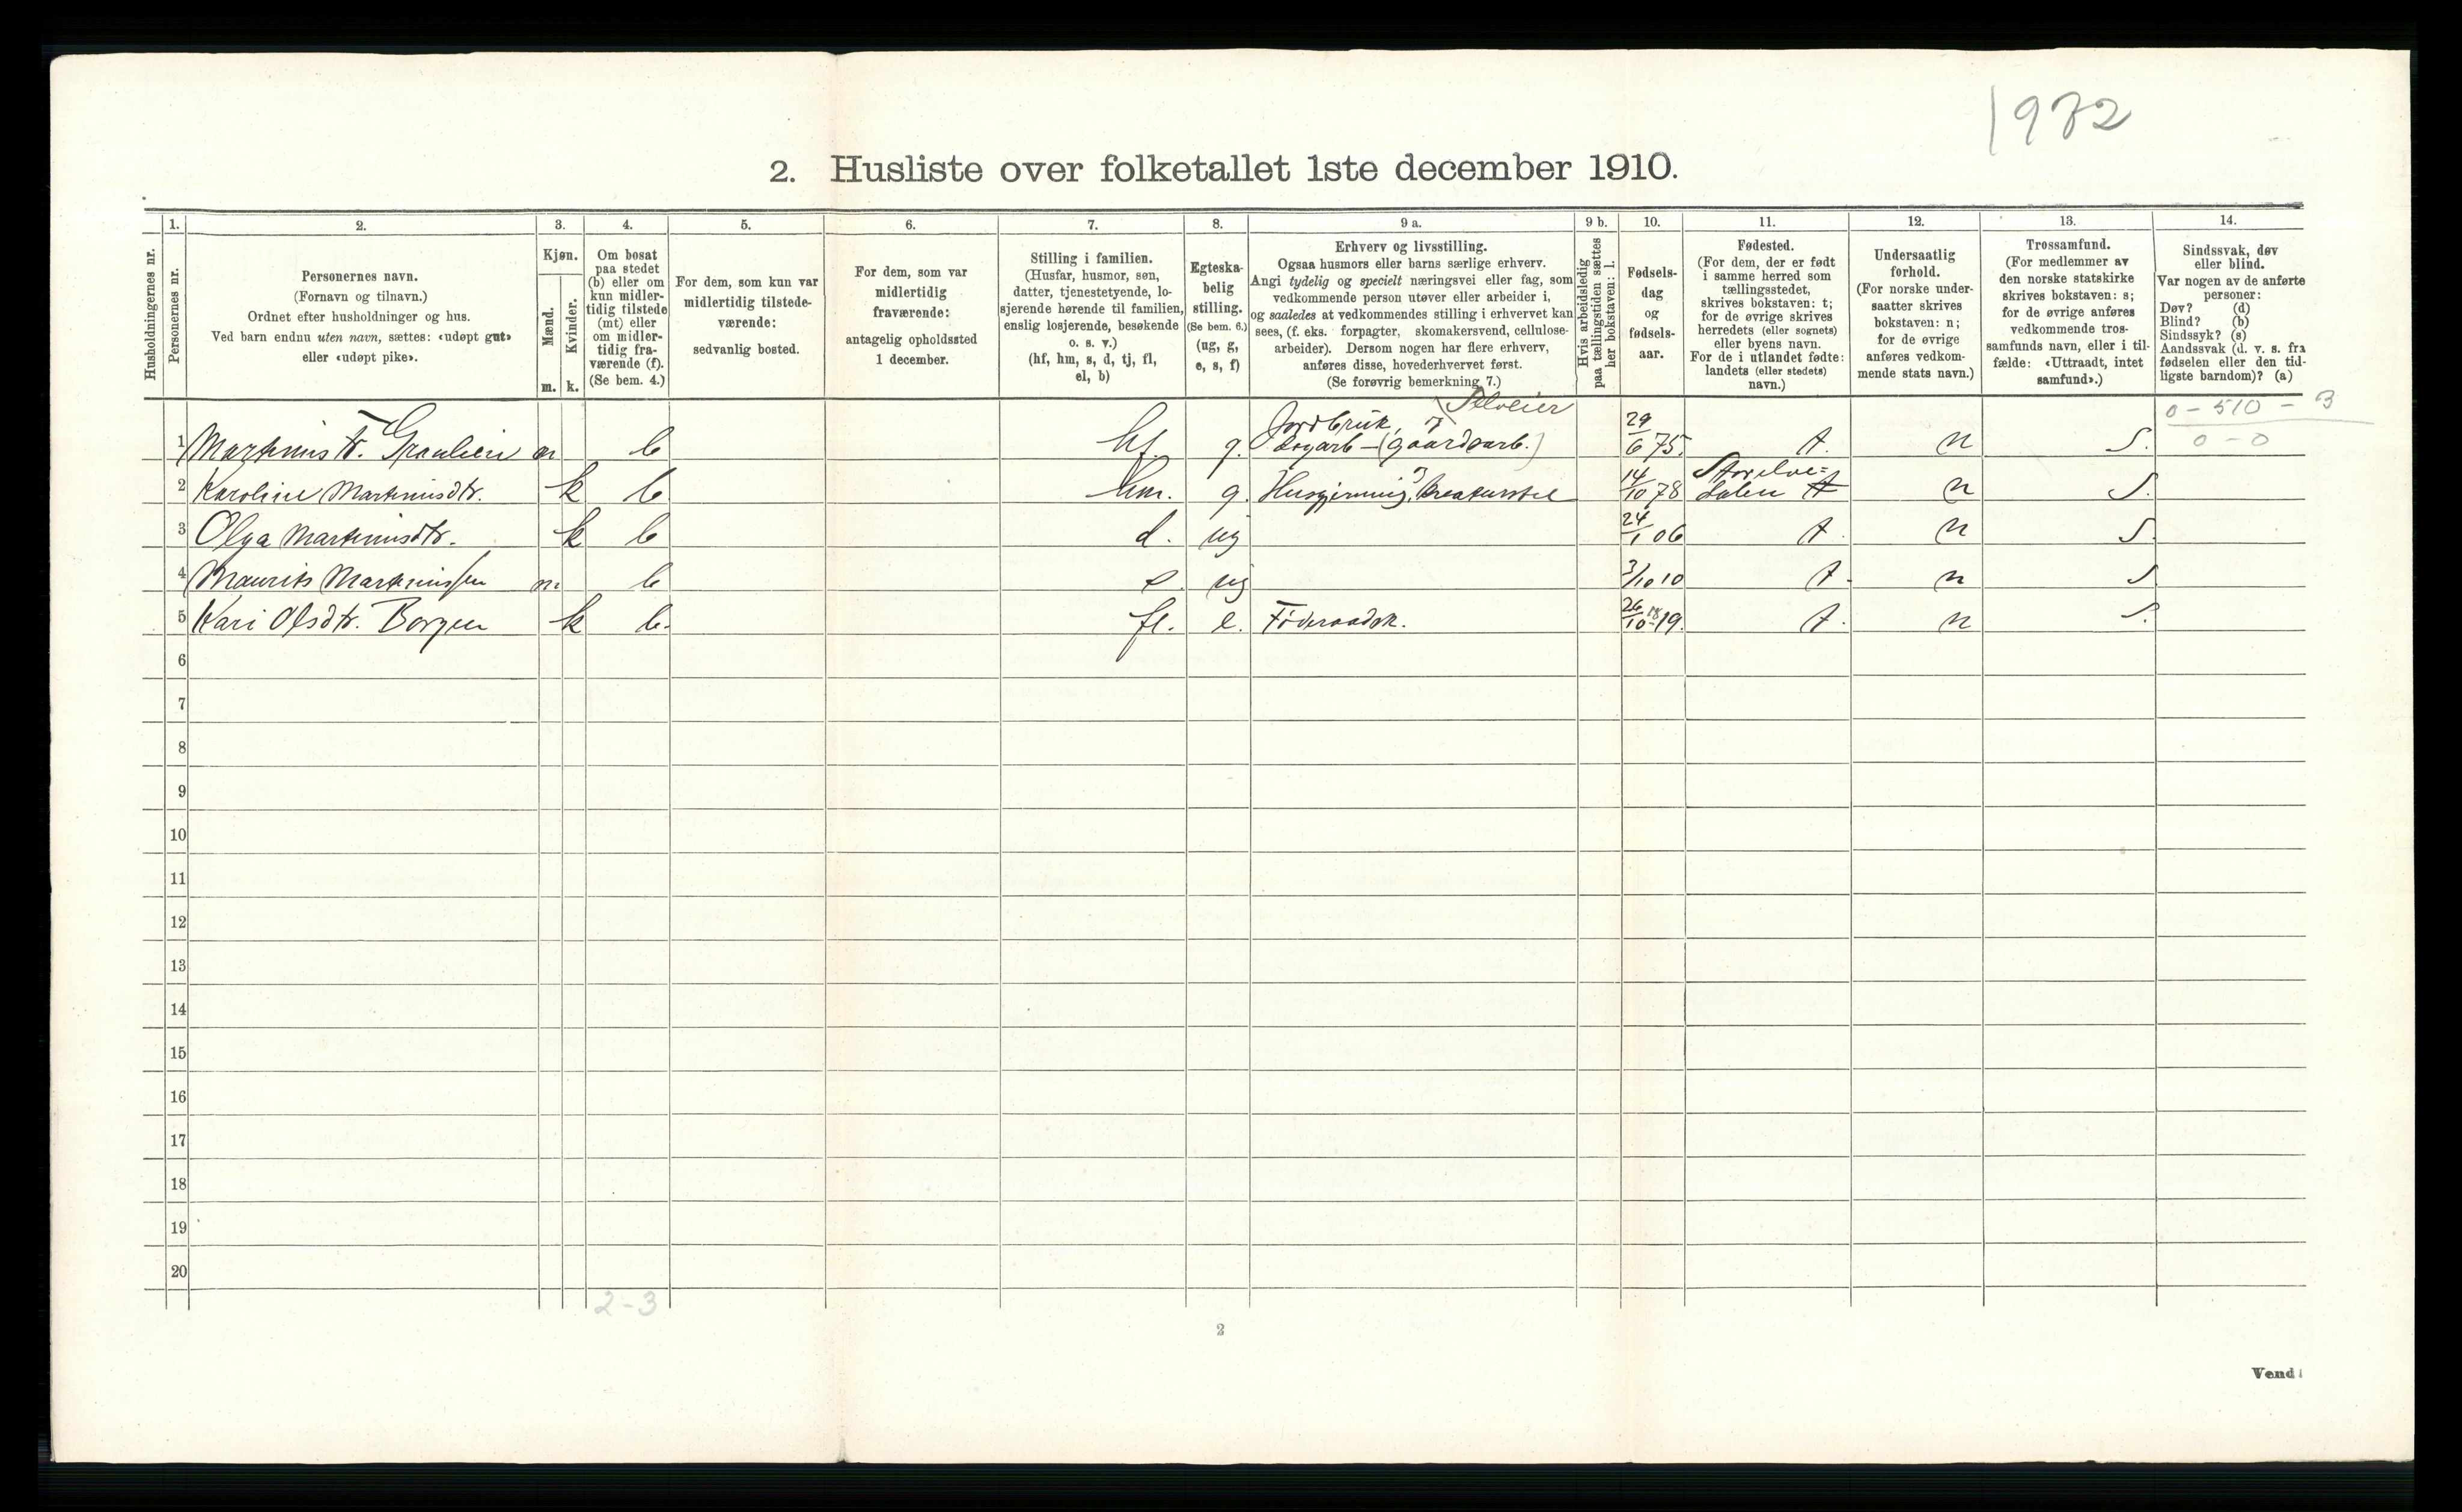 1972
2. Husliste over folketallet 1ste december 1910.
Husholdningernes nr.
1.
Personernes nr.
2.
Personernes navn.
(Fornavn og tilnavn.)
Ordnet efter husholdninger og hus.
Ved barn endnu uten navn, sættes: «udøpt gut»
eller «udøpt pike».
3.
Kjøn.
Mænd.
m.
Kvinder.
k.
4.
Om bosat
paa stedet
(b) eller om
kun midler-
tidig tilstede
(mt) eller
om midler-
tidig fra-
værende (f).
(Se bem. 4.)
5.
For dem, som kun var
midlertidig tilstede-
værende:
sedvanlig bosted.
6.
For dem, som var
midlertidig
fraværende:
antagelig opholdssted
1 december.
7.
Stilling i familien.
(Husfar, husmor, søn,
datter, tjenestetyende, lo-
sjerende hørende til familien,
enslig losjerende, besøkende
o. s. v.)
(hf, hm, s, d, tj, fl,
el, b)
8.
Egteska-
belig
stilling.
(Se bem. 6.)
(ug, g,
e, s, f)
9 a.
Erhverv og livsstilling.
Ogsaa husmors eller barns særlige erhverv.
Angi tydelig og specielt næringsvei eller fag, som
vedkommende person utøver eller arbeider i,
og saaledes at vedkommendes stilling i erhvervet kan
sees, (f. eks. forpagter, skomakersvend, cellulose-
arbeider). Dersom nogen har flere erhverv,
anføres disse, hovederhvervet først.
(Se forøvrig bemerkning 7.)
9 b.
Hvis arbeidsledig
paa tællingstiden sættes
her bokstaven: l.
10.
Fødsels-
dag
og
fødsels-
aar.
11.
Fødested.
(For dem, der er født
i samme herred som
tællingsstedet,
skrives bokstaven: t;
for de øvrige skrives
herredets (eller sognets)
eller byens navn.
For de i utlandet fødte:
landets (eller stedets)
navn.)
12.
Undersaatlig
forhold.
(For norske under-
saatter skrives
bokstaven: n;
for de øvrige
anføres vedkom-
mende stats navn.)
13.
Trossamfund.
(For medlemmer av
den norske statskirke
skrives bokstaven: s;
for de øvrige anføres
vedkommende tros-
samfunds navn, eller i til-
fælde: «Uttraadt, intet
samfund».)
14.
Sindssvak, døv
eller blind.
Var nogen av de anførte
personer:
Døv? (d)
Blind? (b)
Sindssyk? (s)
Aandssvak (d. v. s. fra
fødselen eller den tid-
ligste barndom)? (a)
0 - 510 - 3
0 - 0
Selveier
Jordbruk,
1 Martinus T. Graulien m b hf. g. dagarb - (gaardsarb.) 29/6 75. t. n S.
Storelve=
2 Karoline Martinusdtr. k b hm. g. Husgjerning, Kreaturstel 14/10 78 dalen t n S.
3 Olga Martinusdtr. k b d. ug 24/1 06 t. n S.
4 Maurits Martinussen m. b s ug 3/10 10 t. n S
5 Kari Olsdtr. Borgen k b. fl. e. Føderaadsk. 26/10 18 19. t. n S.
6
7
8
9
10
11
12
13
14
15
16
17
18
19
20
2-3
2
Vend!